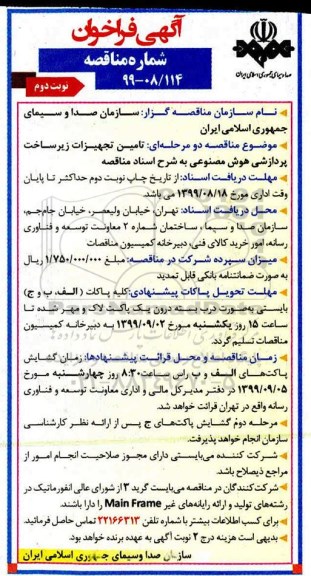 آگهی فراخوان
شماره مناقصه
۹۹-۰۸/۱۱۴
نوبت دوم
صدا و سیمای جمهوری اسلامی ایران
نام سازمان مناقصه گزار: سازمان صدا و سیمای
جمهوری اسلامی ایران
موضوع مناقصه دو مرحله‌ای: تامین تجهیزات زیرساخت
پردازشی هوش مصنوعی به شرح اسناد مناقصه
مهلت دریافت اسناد: از تاریخ چاپ نوبت دوم حداکثر تا پایان
وقت اداری مورخ ۱۳۹۹/۰۸/۱۸ می باشد.
محل دریافت اسناد: تهران، خیابان ولیعصر، خیابان جام‌جم،
سازمان صدا و سیما، ساختمان شماره ۲ معاونت توسعه و فناوری
رسانه، امور خرید کالای فنی، دبیرخانه کمیسیون مناقصات
میزان سپرده شرکت در مناقصه: مبلغ ۱/۷۵۰/۰۰۰/۰۰۰ ریال
به صورت ضمانتنامه بانکی قابل تمدید
مهلت تحویل پاکات پیشنهادی: کلیه پاکات (الف، ب و ج)
بایستی به‌صورت درب بسته درون یک پاکت لاک و مهر شده تا
ساعت ۱۵ روز یکشنبه مورخ ۱۳۹۹/۰۹/۰۲ به دبیرخانه کمیسیون
مناقصات تسلیم گردد.
زمان مناقصه و محل قرائت پیشنهادها: زمان گشایش
پاکت‌های الف و ب راس ساعت ۸:۳۰ روز چهارشنبه مورخ
۱۳۹۹/۰۹/۰۵ در دفتر مدیرکل مالی و اداری معاونت توسعه و فناوری
رسانه واقع در تهران قرائت خواهد شد.
مرحله دوم گشایش پاکت‌های ج پس از ارائه نظر کارشناسی
سازمان انجام خواهد پذیرفت.
شرکت کننده می‌بایستی دارای مجوز صلاحیت انجام امور از
مراجع ذیصلاح باشد.
شرکت‌کنندگان در مناقصه می‌بایست گرید ۳ از شورای عالی انفورماتیک در
رشته‌های تولید و ارائه رایانه‌های غیر Main Frame را دارا باشند.
برای کسب اطلاعات بیشتر با شماره تلفن ۲۲۱۶۶۳۱۳ تماس حاصل فرمائید.
بدیهی است هزینه درج ۲ نوبت آگهی به عهده برنده خواهد بود.
سازمان صدا وسیمای جمهوری اسلامی ایران